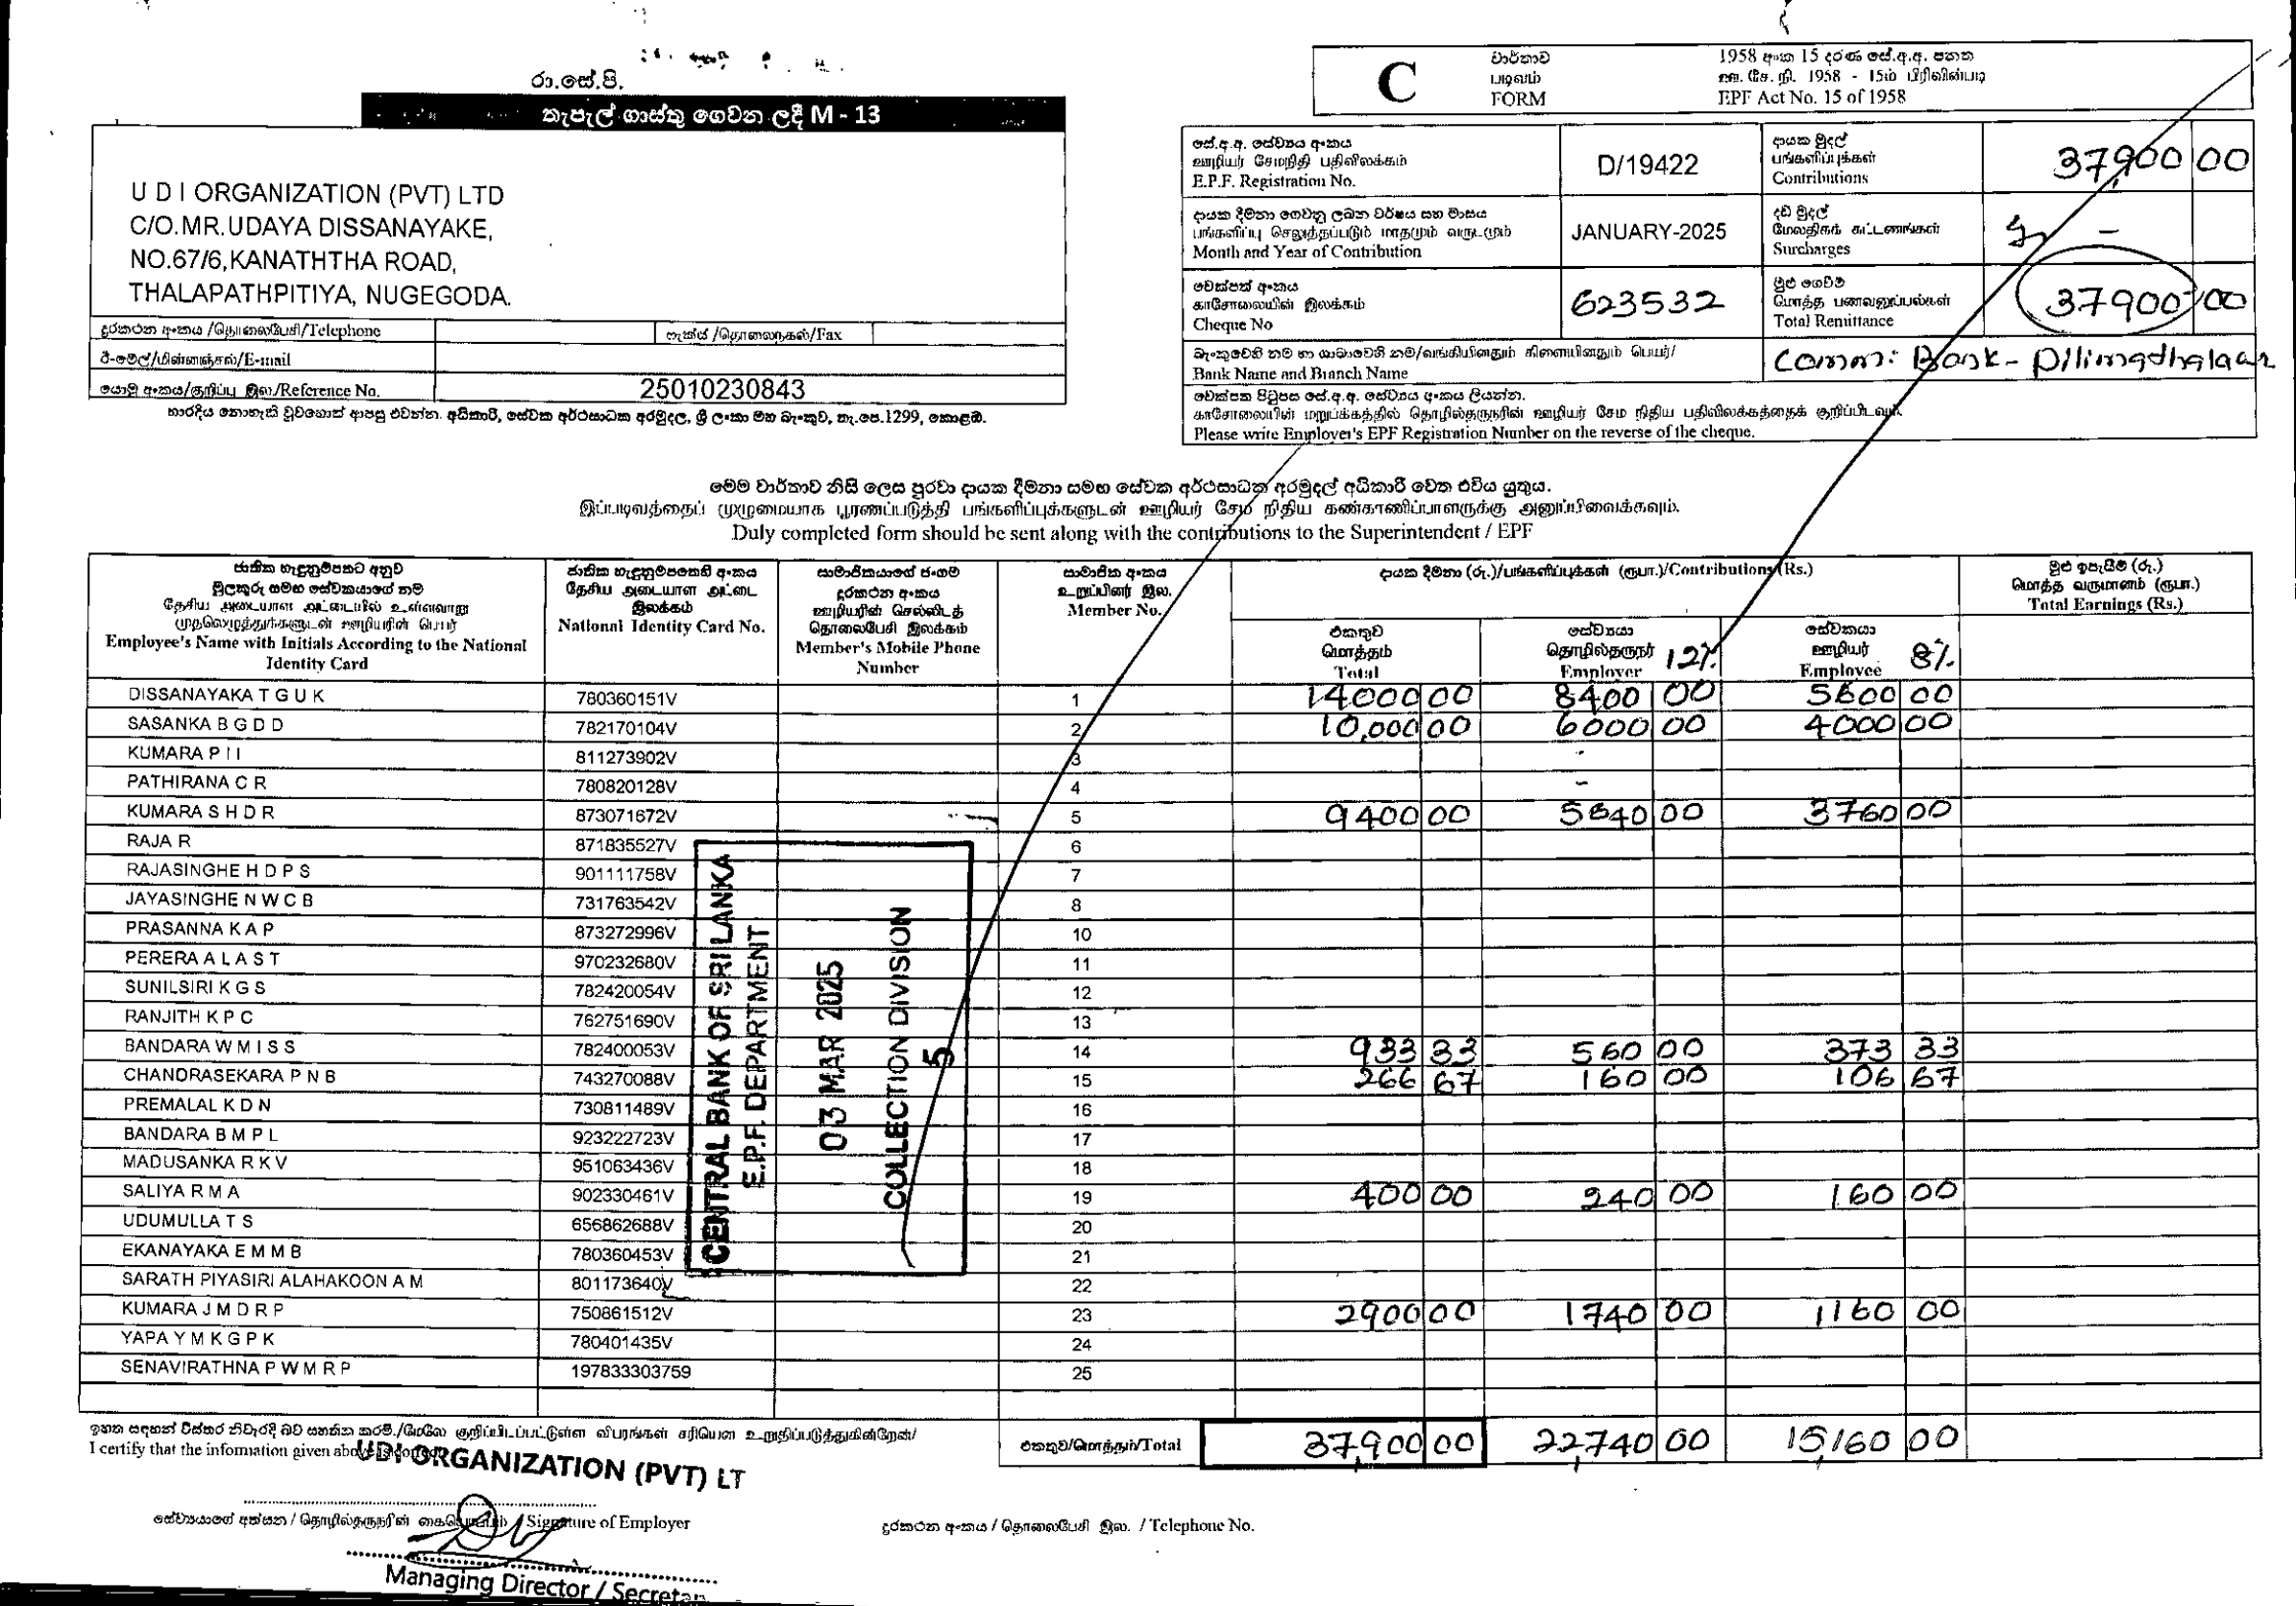 රා.සේ.පි.
තැපැල් ගාස්තු ගෙවන ලදී M - 13
U D I ORGANIZATION (PVT) LTD
C/O.MR.UDAYA DISSANAYAKE,
NO.67/6,KANATHTHA ROAD,
THALAPATHPITIYA, NUGEGODA.
දුරකථන අංකය /தொலைபேசி/Telephone
ෆැක්ස් /தொலைநகல்/Fax
ඊ-මේල්/மின்னஞ்சல்/E-mail
යොමු අංකය/குறிப்பு இல./Reference No. 25010230843
භාරදිය නොහැකි වුවහොත් ආපසු එවන්න. අධිකාරි, සේවක අර්ථසාධක අරමුදල, ශ්‍රී ලංකා මහ බැංකුව, තැ.පෙ.1299, කොළඹ.
C
වාර්තාව
படிவம்
FORM
1958 අංක 15 දරණ සේ.අ.අ. පනත
ஊ. சே. நி. 1958 - 15ம் பிரிவின்படி
EPF Act No. 15 of 1958
සේ.අ.අ. සේව්‍යය අංකය
ஊழியர் சேமநிதி பதிவிலக்கம்
E.P.F. Registration No.
D/19422
දායක මුදල්
பங்களிப்புக்கள்
Contributions
37,900 00
දායක දීමනා ගෙවනු ලබන වර්ෂය සහ මාසය
பங்களிப்பு செலுத்தப்படும் மாதமும் வருடமும்
Month and Year of Contribution
JANUARY-2025
දඩ මුදල්
மேலதிகக் கட்டணங்கள்
Surcharges
-
චෙක්පත් අංකය
காசோலையின் இலக்கம்
Cheque No
623532
මුළු ගෙවීම්
மொத்த பணவனுப்பல்கள்
Total Remittance
37900 00
බැංකුවෙහි නම හා ශාඛාවෙහි නම/வங்கியினதும் கிளையினதும் பெயர்/
Bank Name and Branch Name
Comm: Bank - Pilimathalawa
චෙක්පත පිටුපස සේ.අ.අ. සේව්‍යය අංකය ලියන්න.
காசோலையின் மறுபக்கத்தில் தொழில்தருநரின் ஊழியர் சேம நிதிய பதிவிலக்கத்தைக் குறிப்பிடவும்.
Please write Employer's EPF Registration Number on the reverse of the cheque.
මෙම වාර්තාව නිසි ලෙස පුරවා දායක දීමනා සමඟ සේවක අර්ථසාධක අරමුදල් අධිකාරී වෙත එවිය යුතුය.
இப்படிவத்தைப் முழுமையாக பூரணப்படுத்தி பங்களிப்புக்களுடன் ஊழியர் சேம நிதிய கண்காணிப்பாளருக்கு அனுப்பிவைக்கவும்.
Duly completed form should be sent along with the contributions to the Superintendent / EPF
ජාතික හැඳුනුම්පතට අනුව
මුලකුරු සමඟ සේවකයාගේ නම
தேசிய அடையாள அட்டையில் உள்ளவாறு
முதலெழுத்துக்களுடன் ஊழியரின் பெயர்
Employee's Name with Initials According to the National
Identity Card
ජාතික හැඳුනුම්පතෙහි අංකය
தேசிய அடையாள அட்டை
இலக்கம்
National Identity Card No.
සාමාජිකයාගේ ජංගම
දුරකථන අංකය
ஊழியரின் செல்லிடத்
தொலைபேசி இலக்கம்
Member's Mobile Phone
Number
සාමාජික අංකය
உறுப்பினர் இல.
Member No.
දායක දීමනා (රු.)/பங்களிப்புக்கள் (ரூபா.)/Contributions (Rs.)
මුළු ඉපැයීම් (රු.)
மொத்த வருமானம் (ரூபா.)
Total Earnings (Rs.)
එකතුව
மொத்தம்
Total
සේව්‍යයා
தொழில்தருநர்
Employer 12%
සේවකයා
ஊழியர்
Employee 8%
DISSANAYAKA T G U K 780360151V 1 14000 00 8400 00 5600 00
SASANKA B G D D 782170104V 2 10,000 00 6000 00 4000 00
KUMARA P I I 811273902V 3 -
PATHIRANA C R 780820128V 4 -
KUMARA S H D R 873071672V 5 9400 00 5640 00 3760 00
RAJA R 871835527V 6
RAJASINGHE H D P S 901111758V 7
JAYASINGHE N W C B 731763542V 8
PRASANNA K A P 873272996V 10
PERERA A L A S T 970232680V 11
SUNILSIRI K G S 782420054V 12
RANJITH K P C 762751690V 13
BANDARA W M I S S 782400053V 14 933 33 560 00 373 33
CHANDRASEKARA P N B 743270088V 15 266 67 160 00 106 67
PREMALAL K D N 730811489V 16
BANDARA B M P L 923222723V 17
MADUSANKA R K V 951063436V 18
SALIYA R M A 902330461V 19 400 00 240 00 160 00
UDUMULLA T S 656862688V 20
EKANAYAKA E M M B 780360453V 21
SARATH PIYASIRI ALAHAKOON A M 801173640V 22
KUMARA J M D R P 750861512V 23 2900 00 1740 00 1160 00
YAPA Y M K G P K 780401435V 24
SENAVIRATHNA P W M R P 197833303759 25
CENTRAL BANK OF SRI LANKA
E.P.F. DEPARTMENT
03 MAR 2025
COLLECTION DIVISION
5
එකතුව/மொத்தம்/Total 37,900 00 22,740 00 15,160 00
ඉහත සඳහන් විස්තර නිවැරදි බව සහතික කරමි./மேலே குறிப்பிடப்பட்டுள்ள விபரங்கள் சரியென உறுதிப்படுத்துகின்றேன்/
I certify that the information given above is correct.
UDI ORGANIZATION (PVT) LT
සේව්‍යයාගේ අත්සන / தொழில்தருநரின் கையொப்பம் / Signature of Employer
දුරකථන අංකය / தொலைபேசி இல. / Telephone No.
Managing Director / Secretar